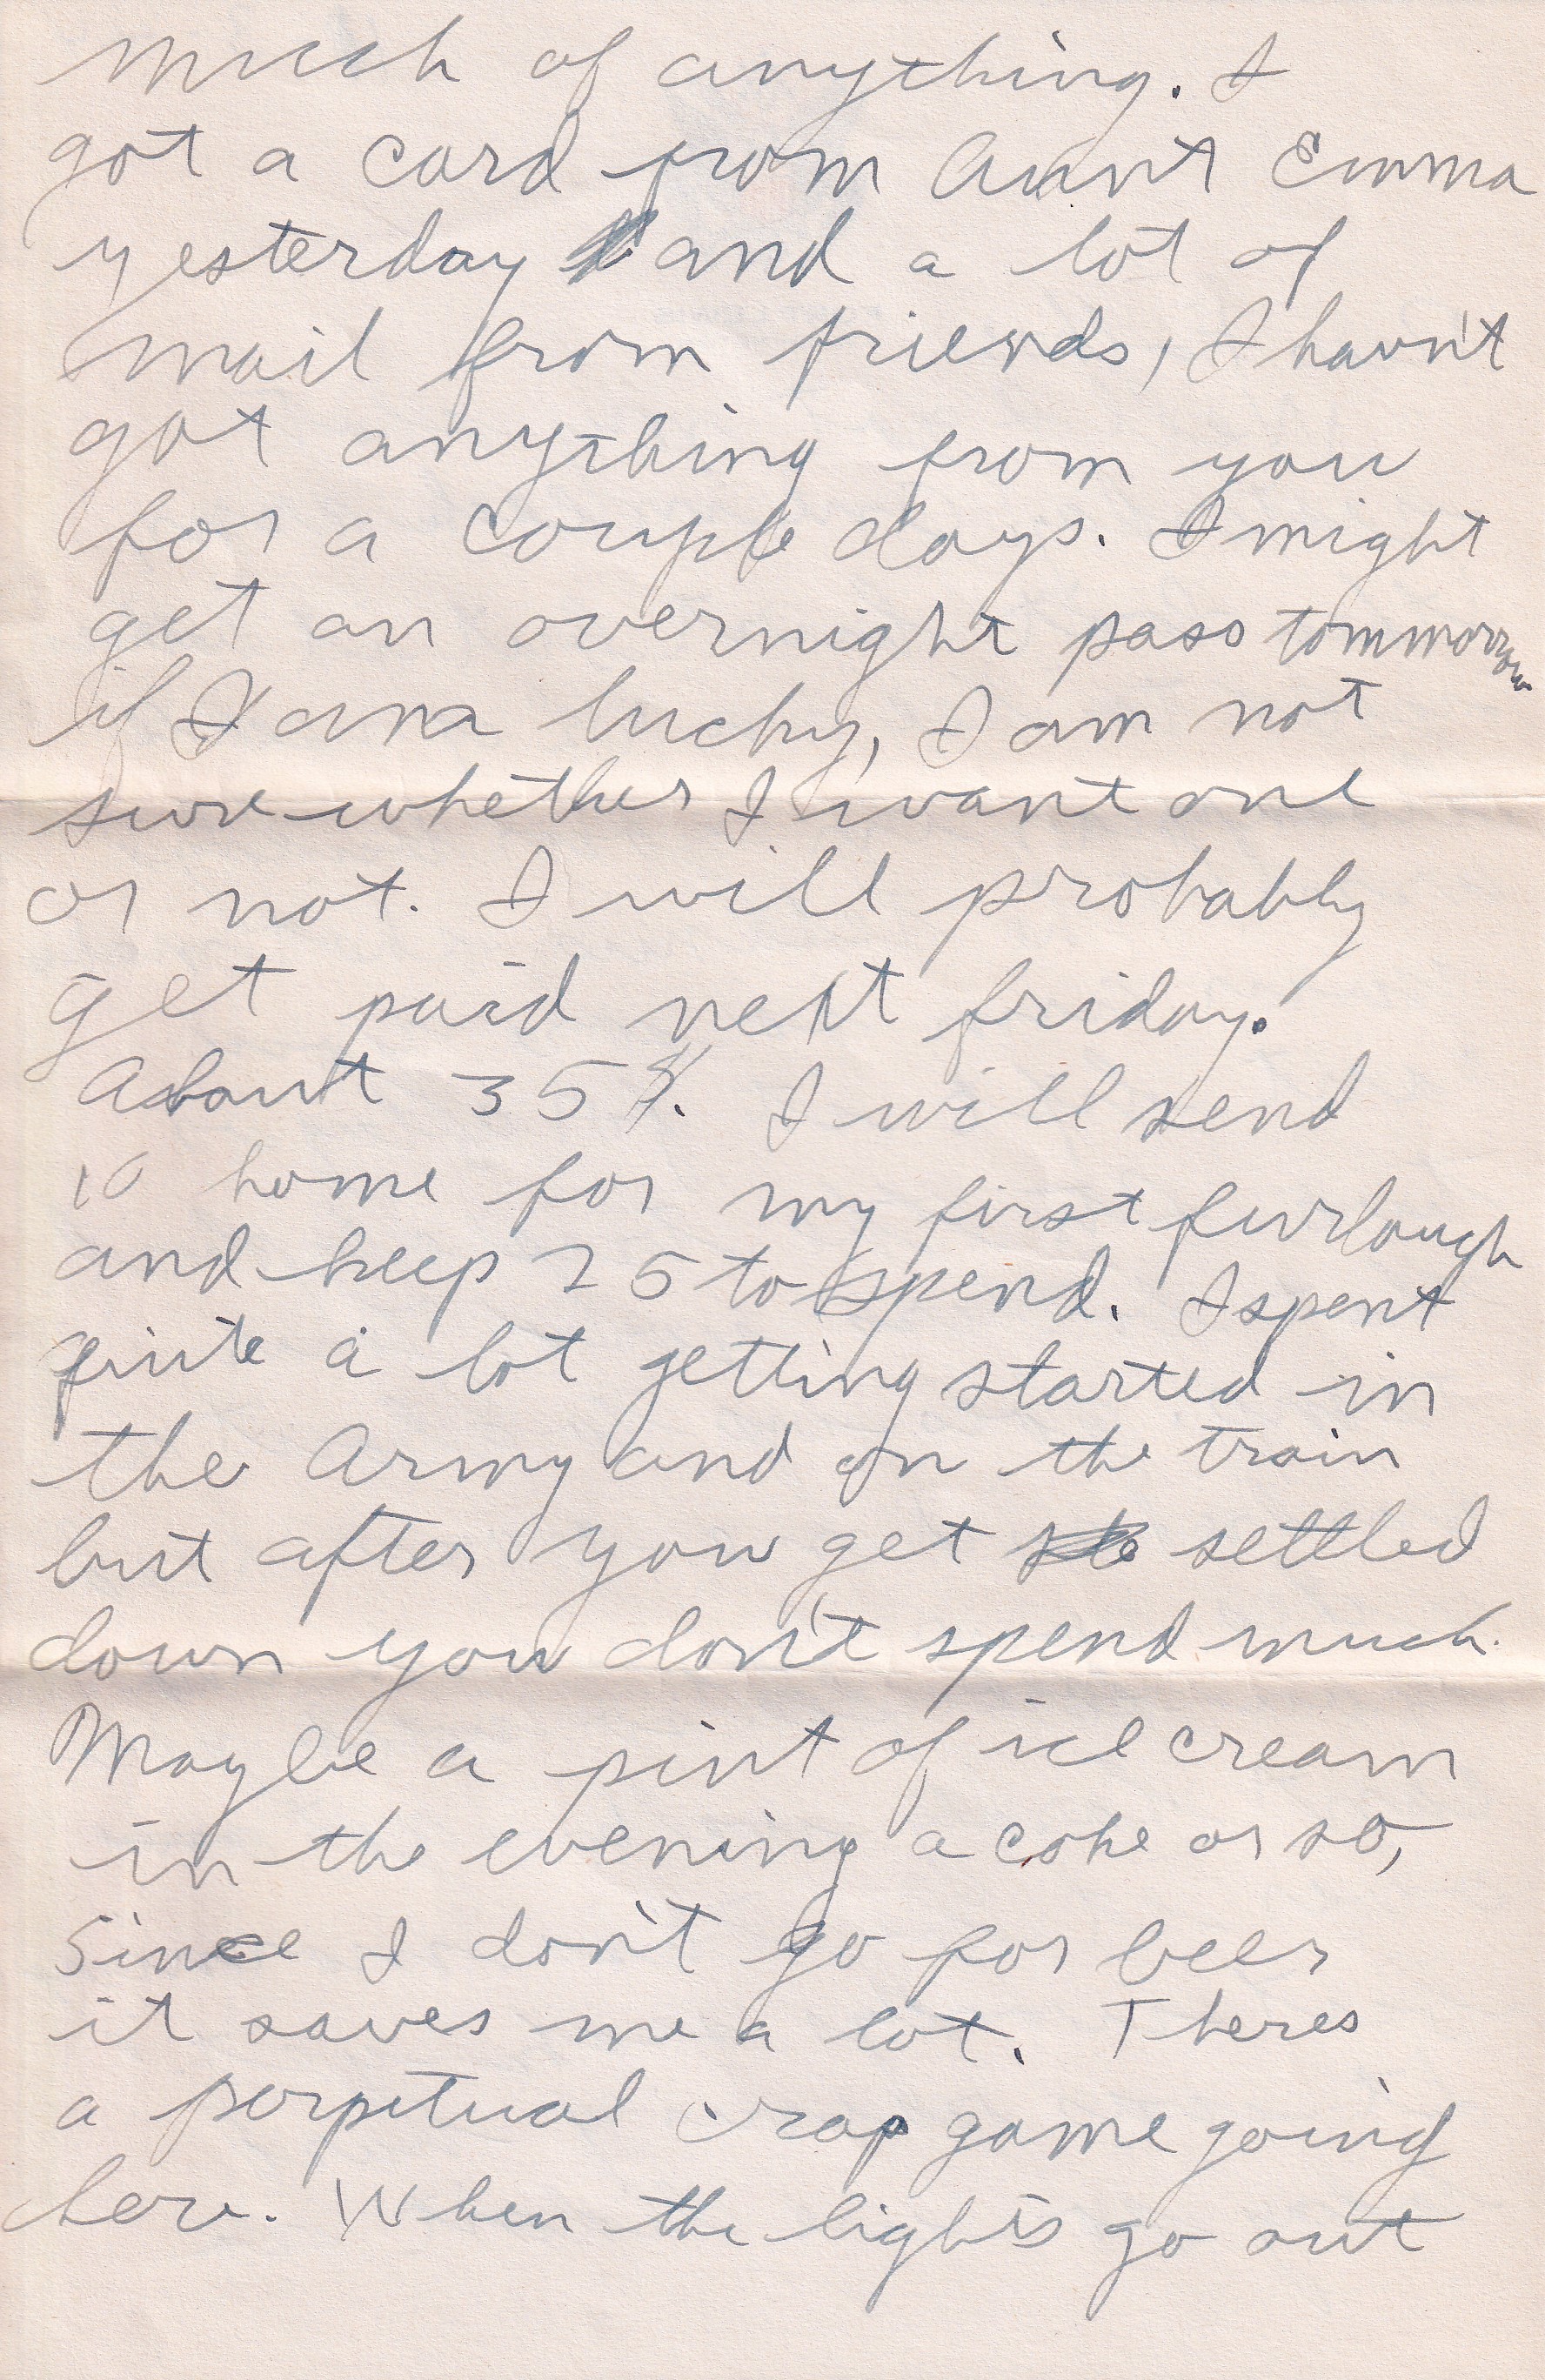 much of anything. I
got a card from Aunt Emma
yesterday and a lot of
mail from friends, I havn't
got anything from you
for a couple days. I might
get an overnight pass tommorrow
if I am lucky, I am not
sure whether I want one
or not. I will probably
get paid next friday.
About 35$. I will send
10 home for my first furlough
and keep 25 to spend. I spent
quite a lot getting started in
the Army and on the train
but after you get settled
down you don't spend much.
Maybe a pint of ice cream
in the evening a coke or so,
Since I don't go for beer
it saves me a lot. Theres
a perpitual crap game going
here. When the lights go out